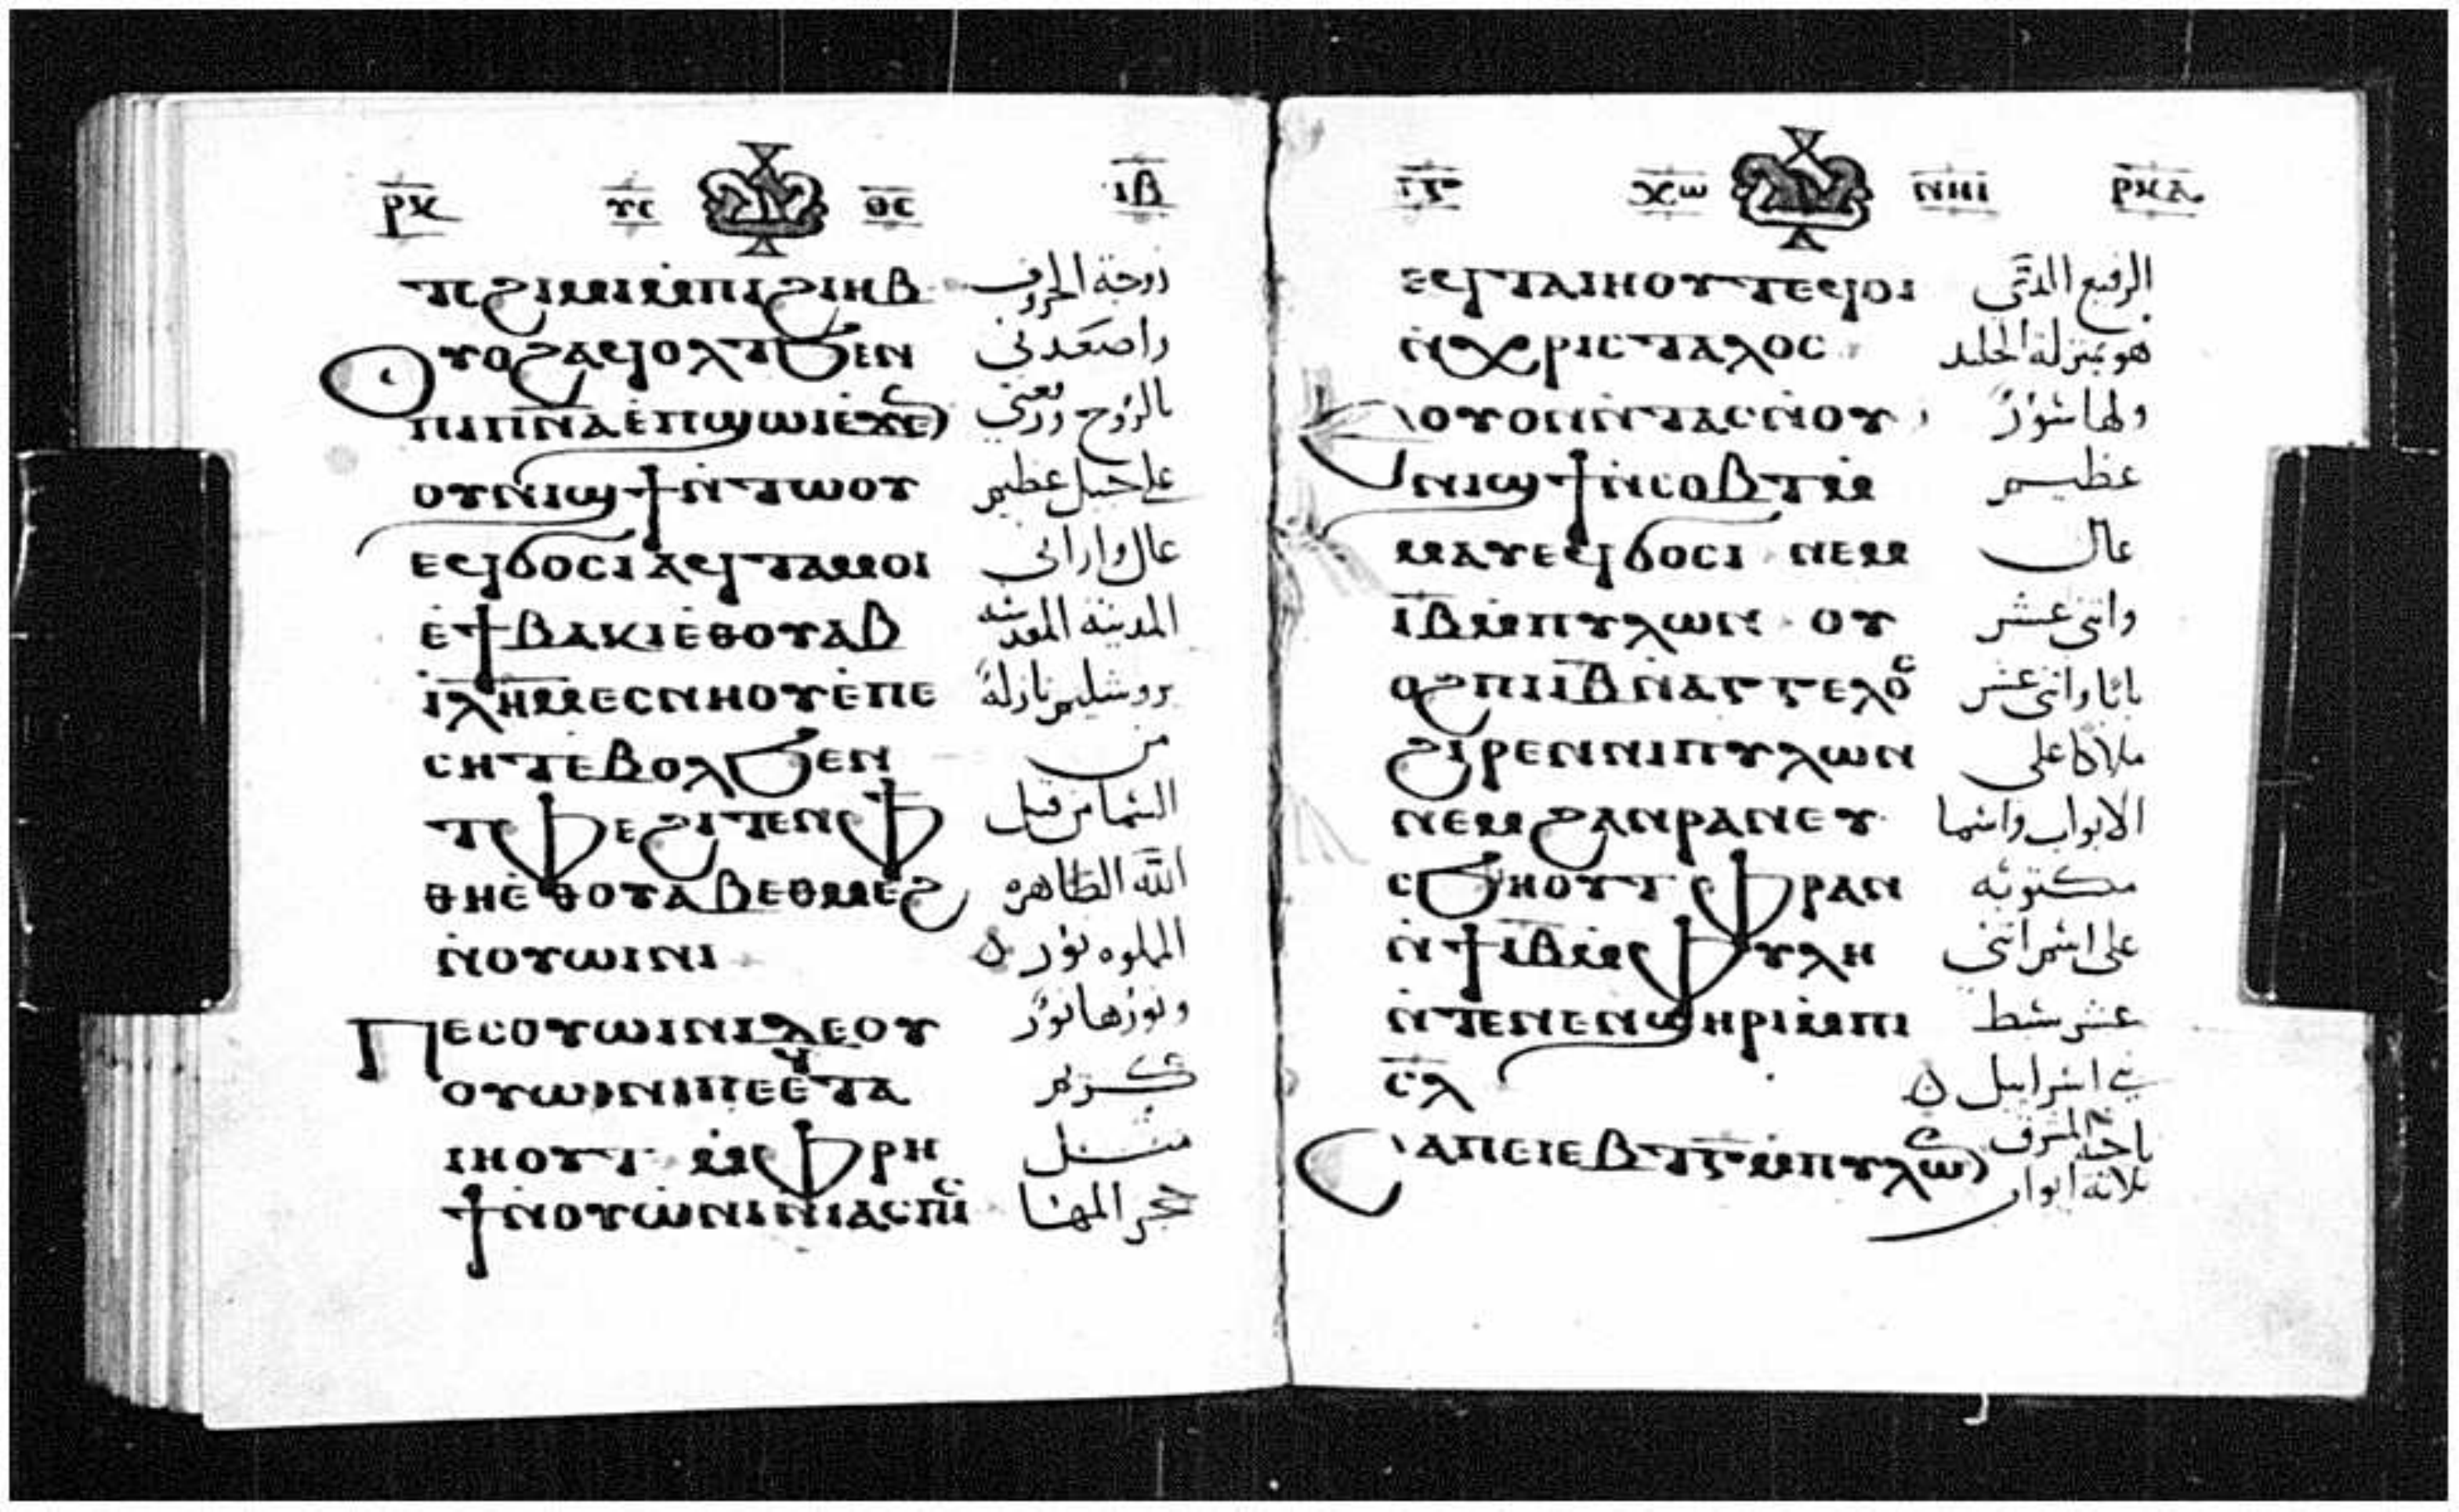 ⲣⲕ ⲩⲥ ⲑⲥ ⲓⲃ
ⲧⲥϩⲓⲙⲓⲙ̇ⲡⲓϩⲓⲏⲃ زوجة الخروف
ⲟⲩⲟϩⲁϥⲟⲗⲧϧⲉⲛ واصعدني
ⲡⲓⲡ̅ⲛ̅ⲁ̅ⲉ̇ⲡϣⲱⲓⲉ̇ϫⲉ بالروح
ⲟⲩⲛⲓϣϯⲛ̇ⲧⲱⲟⲩ على جبل عظيم
ⲉϥϭⲟⲥⲓⲁϥⲧⲁⲙⲟⲓ عال واراني
ⲉ̇ϯⲃⲁⲕⲓⲉ̇ⲑⲟⲩⲁⲃ المدينة المقدسة
ⲓ̅ⲗ̅ⲏ̅ⲙ̅ⲉⲥⲛⲏⲟⲩⲉ̇ⲡⲉ يروشليم نازلة
ⲥⲏⲧⲉ̇ⲃⲟⲗϧⲉⲛ من
ⲧⲫⲉϩⲓⲧⲉⲛⲫ السما من قبل
ⲑⲏⲉ̇ⲑⲟⲩⲁⲃⲉⲑⲙⲉϩ الله الطاهره
ⲛ̇ⲟⲩⲱⲓⲛⲓ المملوه نور
ⲡⲉⲥⲟⲩⲱⲓⲛⲓⲇⲉⲟⲩ ونورها نور
ⲟⲩⲱⲓⲛⲓⲡⲉⲉϥⲧⲁ كريم
ⲓⲏⲟⲩⲧ ⲙ̇ⲫⲣⲏ مثل
ϯⲛ̇ⲟⲩⲱ̇ⲛⲓⲛ̇ⲓⲁⲥⲡⲓ حجر المها
ⲓⲅ ⲭⲱ ⲛⲏⲓ ⲣⲕⲁ
ⲉϥⲧⲁⲓⲏⲟⲩⲧⲉϥⲟⲓ الرفيع
ⲛ̇ⲭⲣⲓⲥⲧⲁⲗⲟⲥ هو بمنزلة الجليد
ⲟⲩⲟⲛⲛ̇ⲧⲁⲥⲛ̇ⲟⲩ ولها سور
ⲛⲓϣϯⲛ̇ⲥⲟⲃⲧⲙ عظيم
ⲙⲁⲩⲉϥϭⲟⲥⲓ ⲛⲉⲙ عال
ⲓ̅ⲃ̅ⲙ̇ⲡⲩⲗⲱⲛ ⲟⲩ واثني عشر
ⲟϩⲡⲓⲓ̅ⲃ̅ⲛ̇ⲁⲅⲅⲉⲗⲟⲥ بابا واثني عشر
ϩⲓⲣⲉⲛⲛⲓⲡⲩⲗⲱⲛ ملاكا على
ⲛⲉⲙϩⲁⲛⲣⲁⲛⲉⲩ الابواب واسما
ⲥϧⲏⲟⲩⲧ ⲫⲣⲁⲛ مكتوبه
ⲛ̇ϯⲓ̅ⲃ̅ⲙ̇ⲫⲩⲗⲏ على اسم اثني
ⲛ̇ⲧⲉⲛⲉⲛϣⲏⲣⲓⲙ̇ⲡⲓ عشر سبط
ⲥ̅ⲗ̅ بني اسراييل
ⲥⲁⲡⲉⲓⲉⲃⲧⲅ̅ⲙ̇ⲡⲩⲗⲱ ثلاثة ابواب